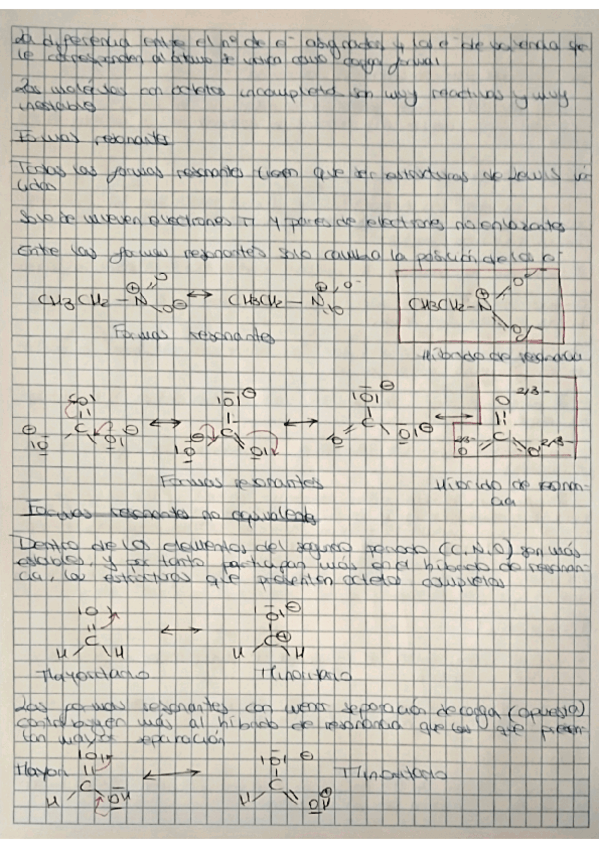 La diferencia entre el nº de e⁻ asignados y los e⁻ de valencia que
le corresponden al átomo se conoce como carga formal
Las moléculas con octetos incompletos son muy reactivas y muy
inestables
Formas resonantes
Todas las formas resonantes tienen que ser estructuras de Lewis vá-
lidas
Solo se mueven electrones π y pares de electrones no enlazantes
Entre las formas resonantes solo cambia la posición de los e⁻
CH3CH2-N⊕ O O⊖ ↔ CH3CH2-N⊕ O⁻ O CH3CH2-N⊕ O O
Formas resonantes
Híbrido de resonancia
O C O⊖ O⊖ ↔ O⊖ C O⊖ O ↔ O⊖ C O O⊖ ↔ O 2/3- C O 2/3- O 2/3-
Formas resonantes
Híbrido de resonan-
cia
Formas resonantes no equivalentes
Dentro de los elementos del segundo periodo (C, N, O) son más
estables, y por tanto participan más en el híbrido de resonan-
cia, las estructuras que presenten octetos completos
O C H H ↔ O⊖ C⊕ H H
Mayoritario Minoritario
Las formas resonantes con menor separación de carga (opuesta)
contribuyen más al híbrido de resonancia que las que presen-
tan mayor separación
Mayor. O C H OH ↔ O⊖ C H OH⊕ Minoritario